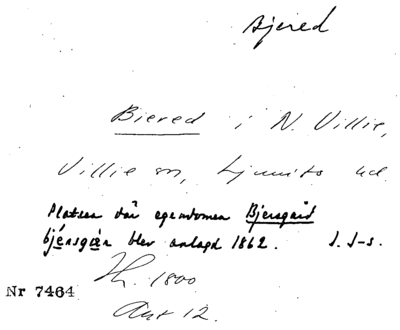 Bjered
Biered i N. Villie,
Villie sn, Ljunits hd.
Platsen där egendomen Bjersgård
bjǽrsgǽn blev anlagd 1862. J. J-s.
1800
Nr 7464
Akt 12.